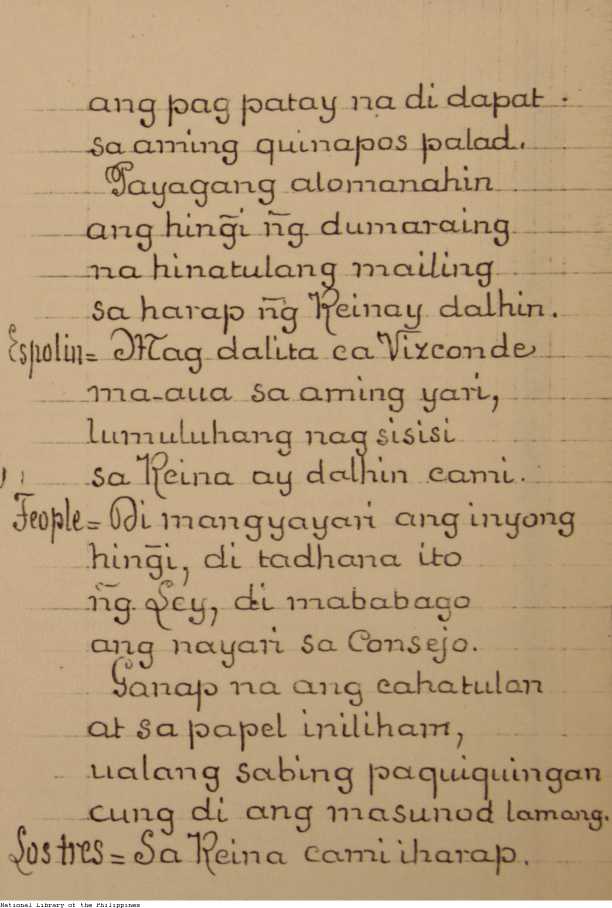 ang pag patay na di dapat.
sa aming quinapos palad.
Payagang alomanahin
ang hing̃i ñg dumaraing
na hinatulang mailing
sa harap ñg Reinay dalhin.
Espolin= Mag dalita ca Vizconde
ma-aua sa aming yari,
lumuluhang nag sisisi
sa Reina ay dalhin cami.
Feople= Di mangyayari ang inyong
hing̃i, di tadhana ito
ñg Ley, di mababago
ang nayari sa Consejo.
Ganap na ang cahatulan
at sa papel iniliham,
ualang sabing paquiquingan
cung di ang masunod lamang.
Los tres= Sa Reina cami iharap.
National Library of the Philippines